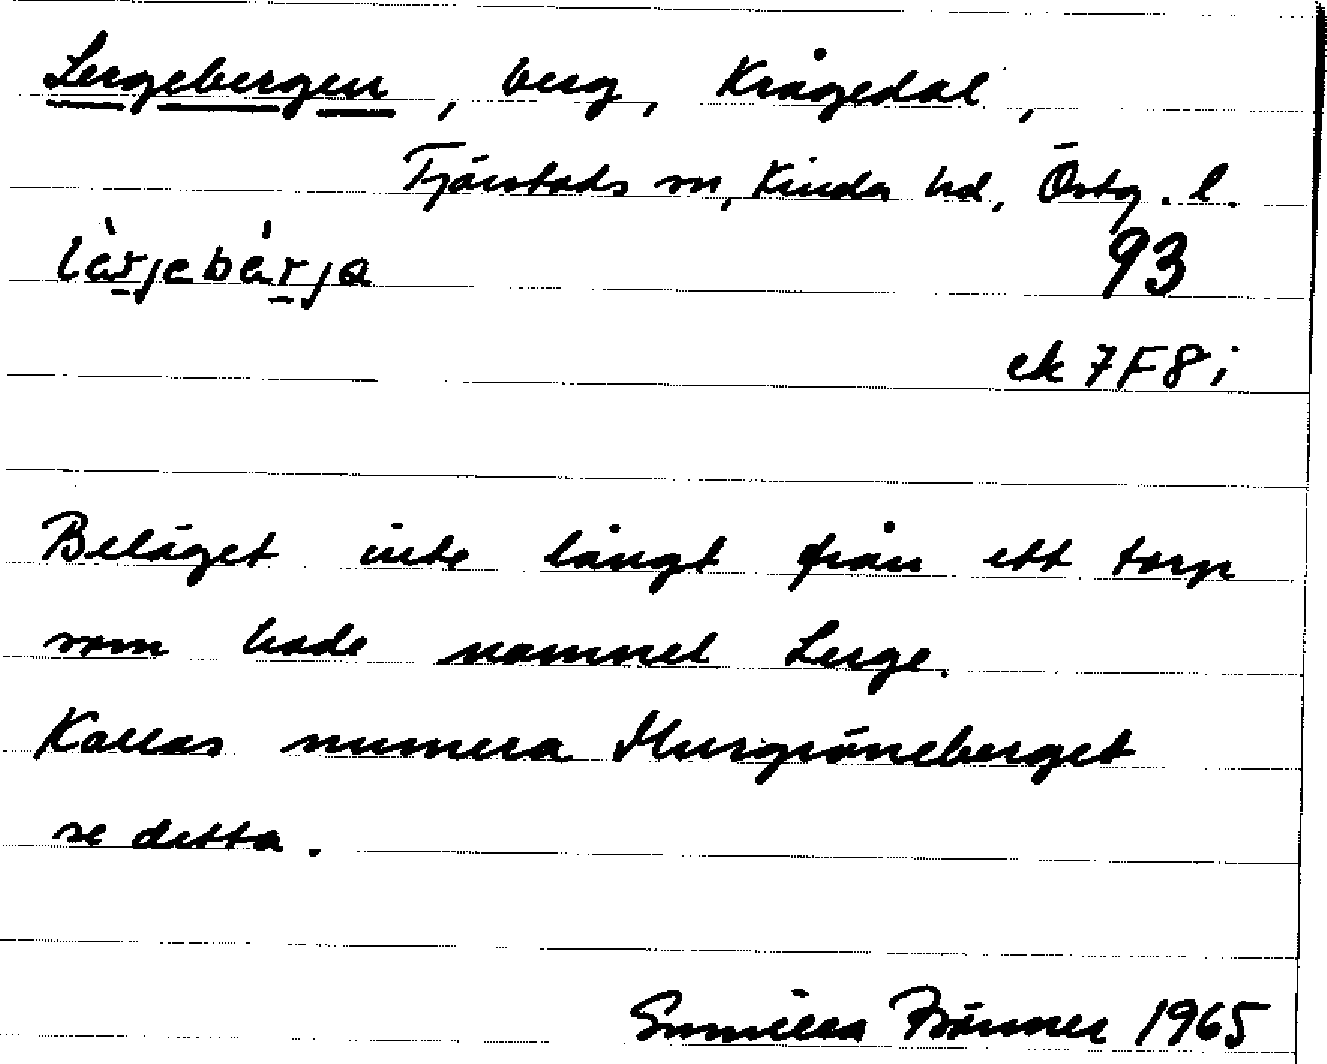 Lergebergen, berg, Krågedal,
Tjärstads sn, Kinda hd, Östg. l.
lèrjebèrja 93
ek 7F8i
Beläget inte långt från ett torp
som hade namnet Lerge.
Kallas numera Murgröneberget
se detta.
1965